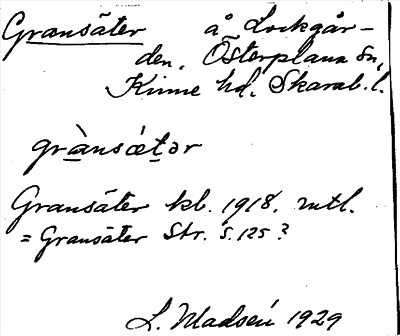 Gransäter å Lockgår-
den, Österplana sn,
Kinne hd, Skarab. l.
grànsǽtər
Gransäter kb. 1918. mtl.
= Gransäter Str. S. 125?
L. Madsén 1929